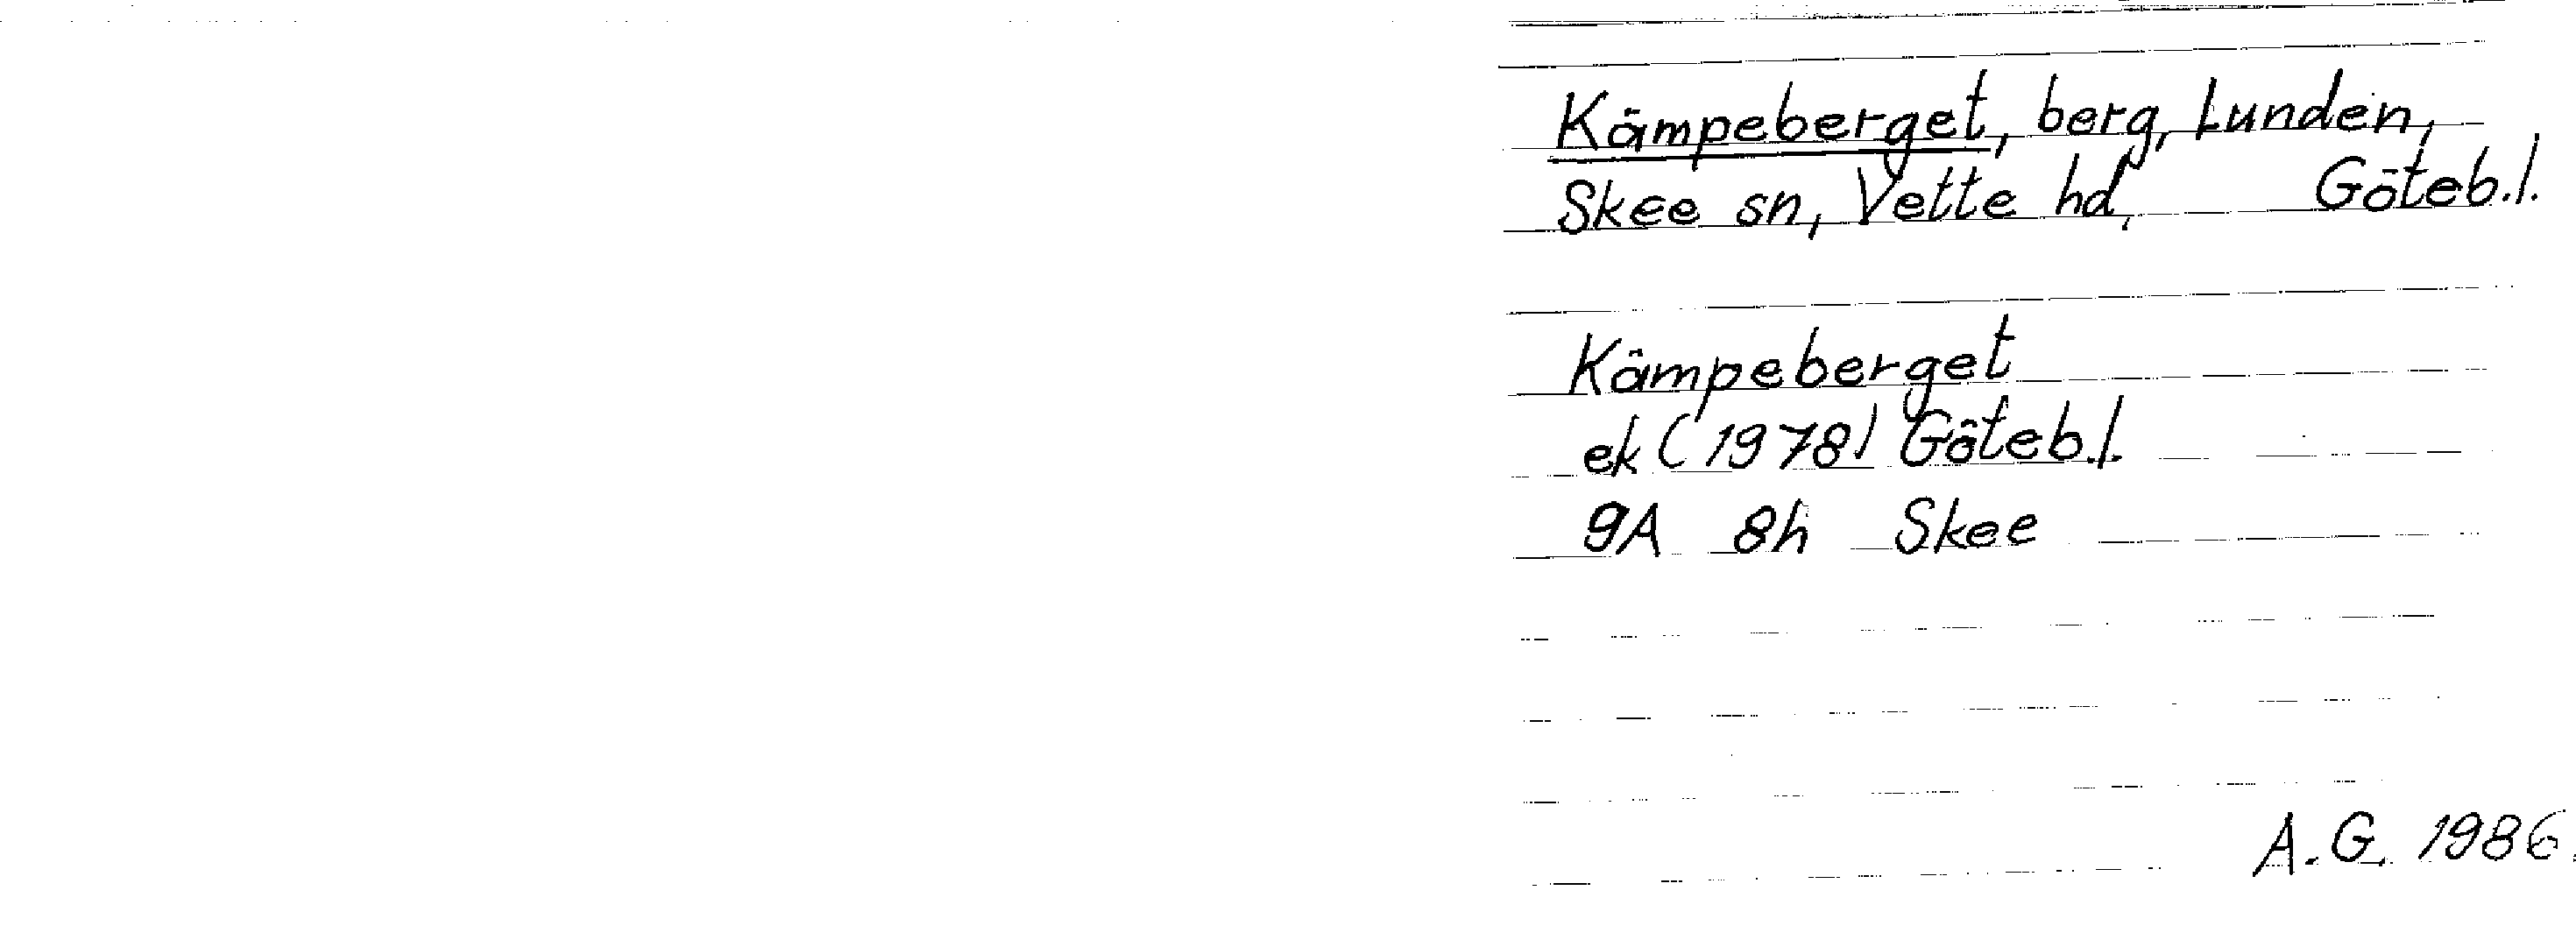 Kämpeberget, berg, Lunden,
Skee sn, Vette hd, Göteb.l.
Kämpeberget
ek (1978) Göteb.l.
9A 8h Skee
A.G. 1986.